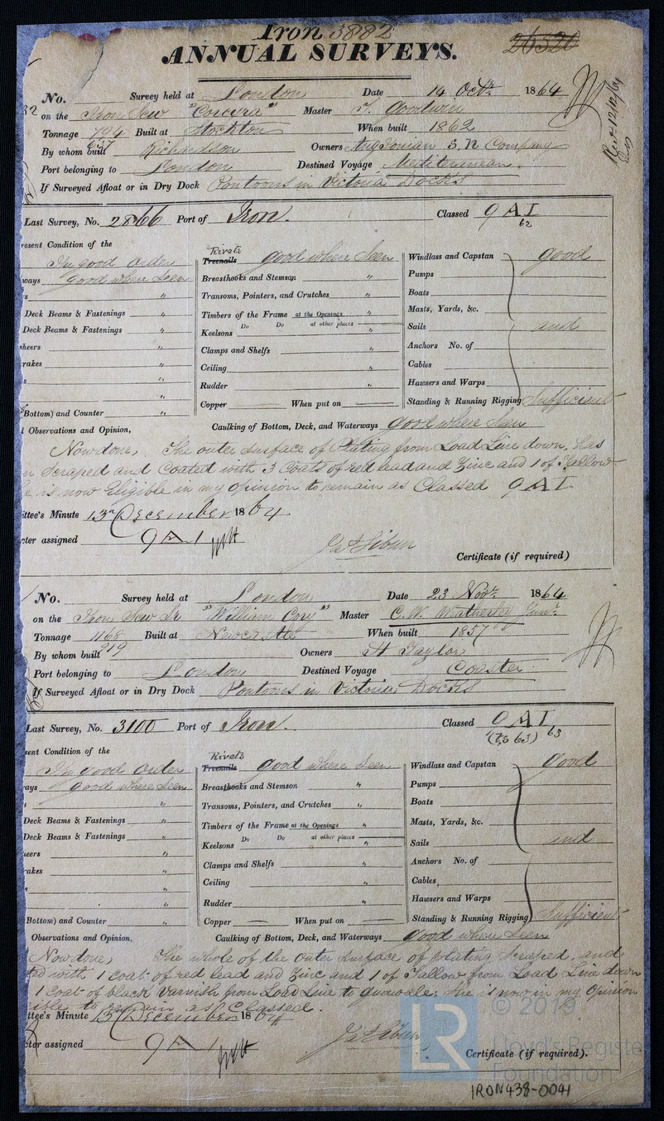 Iron 3882
26520
ANNUAL SURVEYS.
No. Survey held at London Date 14 Octr. 1864
on the Iron Screw Master T. Goodwin
Tonnage 794 Built at Stockton When built 1862
By whom built Richardson Owners S. N Company
Port belonging to London Destined Voyage Mediterranean.
If Surveyed Afloat or in Dry Dock Pontoons in Victoria Docks
Last Survey, No. 2866 Port of Iron. Classed 9 A I
62
esent Condition of the
In good order
ways good where seen
Rivets
Treenails good where seen
Windlass and Capstan good
Breasthooks and Stemson "
Pumps
Transoms, Pointers, and Crutches "
Boats
Deck Beams & Fastenings "
Timbers of the Frame at the Openings "
Masts, Yards, &c.
Deck Beams & Fastenings "
Keelsons Do Do at other places "
Sails and
heers "
Clamps and Shelfs "
Anchors No. of
rakes "
Ceiling "
Cables
Rudder "
Hawsers and Warps
Bottom) and Counter "
Copper When put on
Standing & Running Rigging Sufficient
l Observations and Opinion, Caulking of Bottom, Deck, and Waterways good where seen
Now done, The outer surface of Plating from Load Line down, has
n Scraped and Coated with 3 Coats of red lead and Zinc and 1 of Tallow
e is now Eligible in my opinion to remain as Classed 9 A I
ittee's Minute 13th December 1864
cter assigned 9 A 1
Certificate (if required)
No. Survey held at London Date 23 Novr. 1864
on the Iron Screw Sr "William Cory" Master C. W. Weatherley
Tonnage 1168 Built at Newcastle When built 1857
By whom built Owners H Taylor
719
Port belonging to London Destined Voyage Coaster
If Surveyed Afloat or in Dry Dock Pontoons in Victoria Docks
Last Survey, No. 3100 Port of Iron. Classed 9 A I
63
sent Condition of the
In good order
ways good where seen
Rivets
Treenails good where seen
Windlass and Capstan good
Breasthooks and Stemson "
Pumps
Transoms, Pointers, and Crutches "
Boats
Deck Beams & Fastenings "
Timbers of the Frame at the Openings "
Masts, Yards, &c.
Deck Beams & Fastenings "
Keelsons Do Do at other places "
Sails and
eers "
Clamps and Shelfs "
Anchors No. of
rakes "
Ceiling "
Cables
Rudder "
Hawsers and Warps
Bottom) and Counter "
Copper When put on
Standing & Running Rigging Sufficient
Observations and Opinion, Caulking of Bottom, Deck, and Waterways good where seen
Now done, The whole of the outer surface of plating Scraped, and
ed with 1 coat of red lead and Zinc and 1 of Tallow from Load Line down
1 coat of black varnish from Load Line to gunwale. She is now in my Opinion
ible to remain as Classed.
ttee's Minute 13th December 1864
cter assigned 9 A 1
Certificate (if required).
LR © 2019
Lloyd's Register
Foundation
IRON438-0041